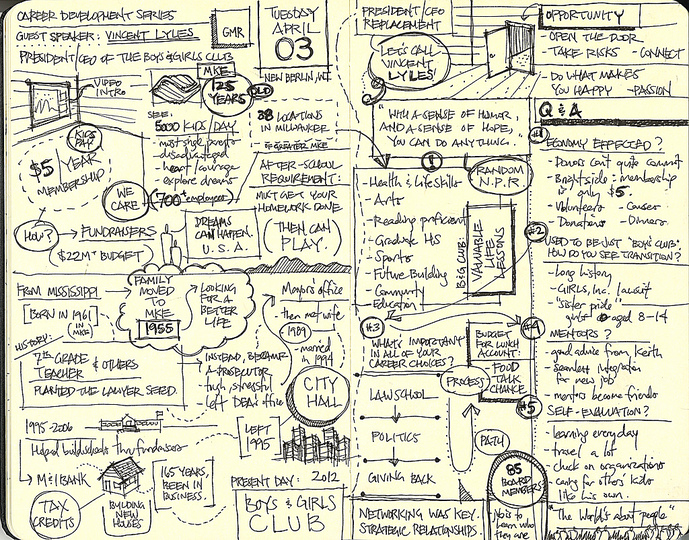 CAREER DEVELOPMENT SERIES
GUEST SPEAKER: VINCENT LYLES
PRESIDENT/CEO OF THE BOYS & GIRLS CLUB
GMR
TUESDAY
APRIL
03
NEW BERLIN, WI
VIDEO
INTRO
MKE
125
YEARS
OLD
KIDS
PAY
$5/YEAR
MEMBERSHIP
SEE:
5000 KIDS/DAY
- disadvantaged
- heart/courage
- explore dreams
38 LOCATIONS
IN MILWAUKEE
& GREATER MKE
WE
CARE
700+ employees
AFTER-SCHOOL
REQUIREMENT:
MUST GET YOUR
HOMEWORK DONE
(THEN CAN
PLAY.)
HOW?
FUNDRAISERS
$22M+ BUDGET
DREAMS
CAN HAPPEN.
U.S.A.
FROM MISSISSIPPI
[BORN IN 1961]
(IN MKE)
FAMILY
MOVED
TO
MKE
1955
LOOKING
FOR A
BETTER
LIFE
Mayor's office
- then met wife
1989
- married
in 1994
HISTORY:
7th GRADE & OTHERS
TEACHER
PLANTED THE LAWYER SEED.
INSTEAD, BECAME
A PROSECUTOR
- tough, stressful
- left DA's office
CITY
HALL
LEFT
1995
1995-2006
Helped build schools thru fundraisers
M&I BANK
TAX
CREDITS
BUILDING
NEW
HOUSES
165 YEARS,
BEEN IN
BUSINESS.
PRESENT DAY: 2012
BOYS & GIRLS
CLUB
PRESIDENT/CEO
REPLACEMENT
LET'S CALL
VINCENT
LYLES!
"WITH A SENSE OF HUMOR,
AND A SENSE OF HOPE,
YOU CAN DO ANYTHING."
- Health & Life Skills
- Arts
- Reading proficient
- Graduate HS
- Sports
- Future Building
- Community
Education
RANDOM
N.P.R.
B&G CLUB:
VALUABLE
LIFE
LESSONS
#3
WHAT'S IMPORTANT
IN ALL OF YOUR
CAREER CHOICES?
BUDGET
FOR LUNCH
ACCOUNT:
- FOOD
- TALK
- CHANCE
PROCESS
LAW SCHOOL
POLITICS
GIVING BACK
PATH
NETWORKING WAS KEY.
STRATEGIC RELATIONSHIPS.
85
BOARD
MEMBERS
job is to
learn who
they are
OPPORTUNITY
- OPEN THE DOOR
- TAKE RISKS - CONNECT
- DO WHAT MAKES
YOU HAPPY - PASSION
Q & A
#1
ECONOMY EFFECTED?
- Donors can't quite commit
- Brightside - membership
is only $5.
- Volunteers
- Donations - Dinners
#2
USED TO BE JUST "BOYS CLUB".
HOW DO YOU SEE TRANSITION?
- Long history
- GIRLS, Inc. lawsuit
- "Sister pride"
girls aged 8-14
#4
MENTORS?
- good advice from Keith
- seamless integration
for new job
- mentors became friends
#5
SELF-EVALUATION?
- learning everyday
- travel a lot
- check on organizations
- caring for others' kids
like his own.
"The World's about people"